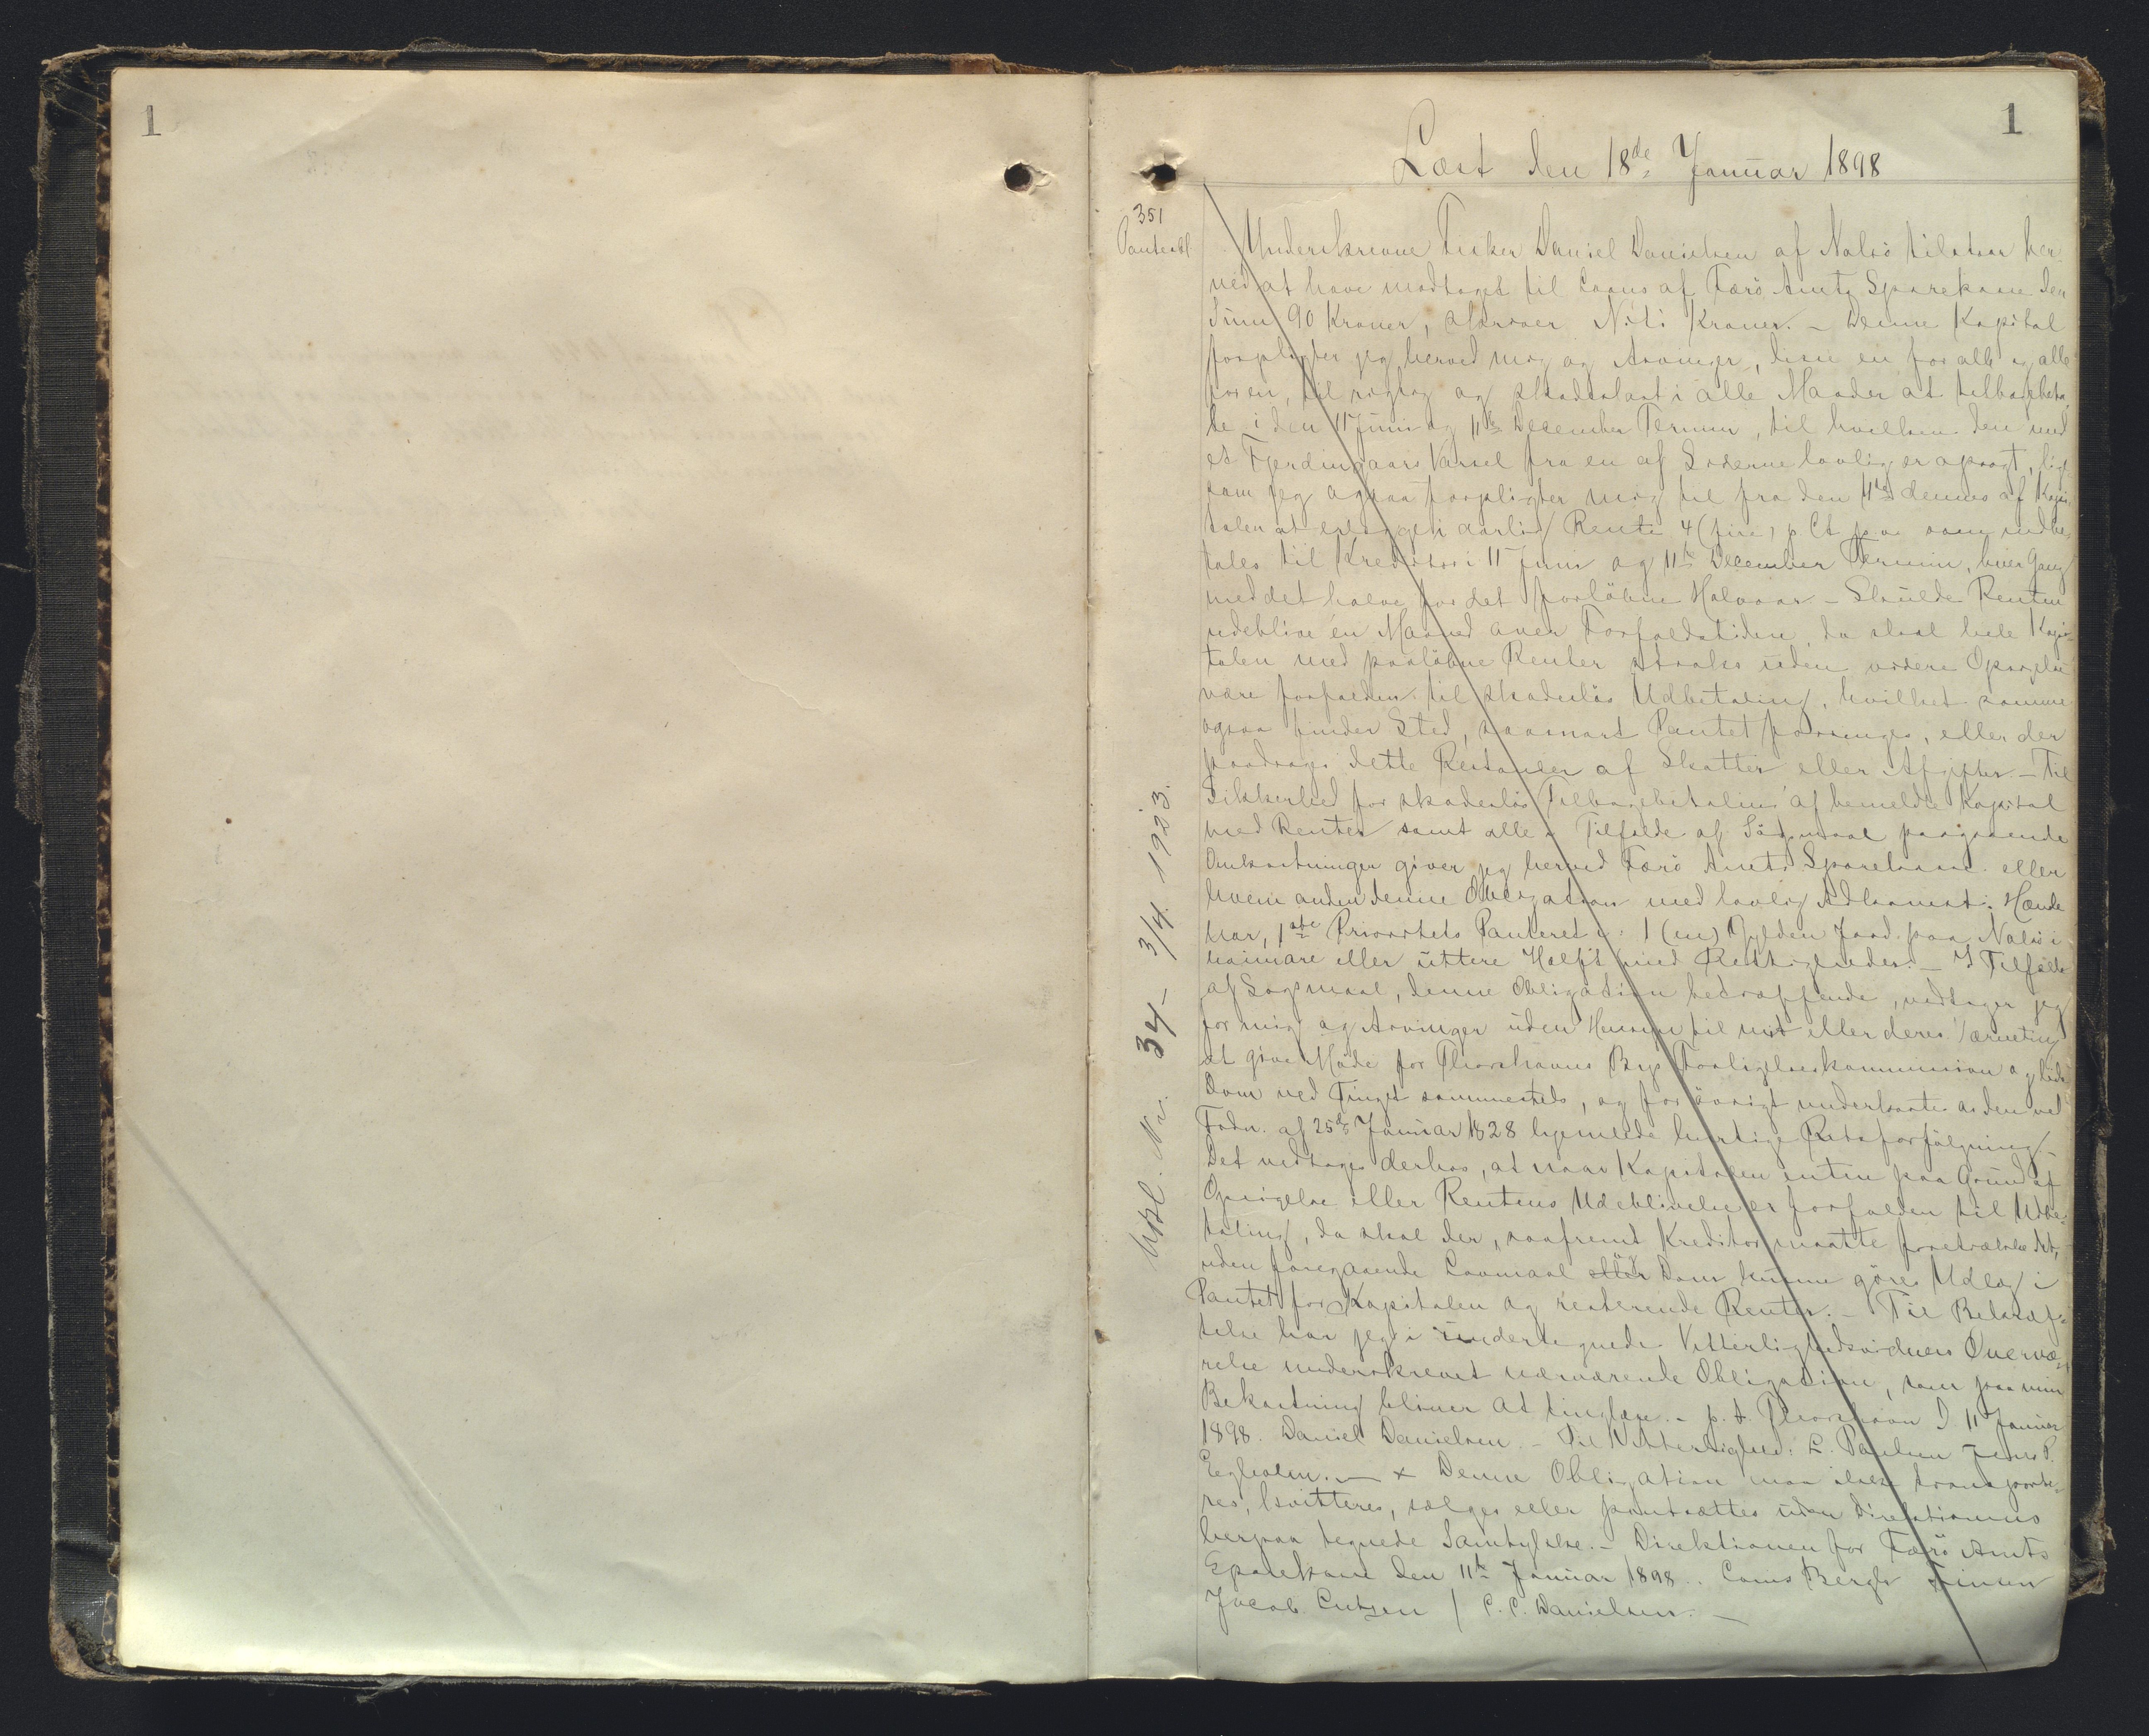 1
1
Læst den 18de Januar 1898
351
Panteobl.
Underskrevne Fisker Daniel Danielsen af Nolsö tilstaar her-
ved at have modtaget til Laans af Færö Amts Sparekasse den
Sum 90 Kroner, skriver Niti Kroner. – Denne Kapital
forpligter jeg herved mig og Arvinger, disse en for alle og alle
for en, til rigtig og skadeslöst i alle Maader at tilbagebeta-
le i den 11 Juni og 11te December Termin, til hvilken den med
et Fjerdingaars Varsel fra en af Siderne lovlig er opsagt, lige
som jeg ogsaa forpligter mig til fra den 11te dennes af Kapi-
talen at erlægge i aarlig Rente 4 (fire) p Ct p a som indbe-
tales til Kreditor i 11 Juni og 11te December Termin, hver Gang
med det halve for det forlöbne Halvaar – Skulde Renten
udeblive en Maaned over Forfaldstiden, da skal hele Kapi-
talen med paalöbne Renter straks uden videre Opsigelse
være forfalden til skadeslös Udbetaling, hvilket samme
ogsaa finder Sted, saasnart Pantet forringes, eller der
paadrages dette Restancer af Skatter eller Afgifter. – Til
Sikkerhed for skadeslös Tilbagebetaling af bemeldte Kapital
med Renter samt alle i Tilfælde af Sögsmaal paagaaende
Omkostninger giver jeg herved Færö Amts Sparekasse eller
hvem anden denne Obligation med lovlig Adkomst i Hænde
har, 1ste Prioritets Panteret i 1 (en) Gylden Jord paa Nolsö i
haimare eller uttere Helft med Rettigheder. – I Tilfælde
af Sögsmaal, denne Obligation betræffende, vedtager jeg
for mig og Arvinger uden Hensyn til mit eller deres Værneting
at give Möde for Thorshavns Byes Forligelseskommission og lide
Dom ved Tinget sammesteds, og for övrigt underkaste os den ved
Fodn. af 25de Januar 1828 hjemlede hurtige Retsforfölgning. –
Det vedtages derhos, at naar Kapitalen enten paa Grund af
Opsigelse eller Rentens Udeblivelse er forfalden til Udbe-
taling, da skal der, saafremt Kreditor maatte foretrække det,
uden foregaaende Lovmaal eller og Dom kunne göres Udlæg i
Pantet for Kapitalen og resterende Renter. – Til Bekræf-
telse har jeg i undertegnede Vitterlighedsvidners Overvæ-
relse underskrevet nærværende Obligation, som paa min
Bekostning bliver at tinglæse. – p. t. Thorshavn d 11 Januar
1898. Daniel Danielsen. – Til Vitterlighed: L. Poulsen Jens P.
Eegholm. – x Denne Obligation maa ikke transporte-
res, kvitteres, sælges eller pantsættes uden Direktionens
herpaa tegnede Samtykke. – Direktionen for Færö Amts
Sparekasse den 11te Januar 1898. Louis Bergh Finsen
Jacob Lutzen / C. C. Danielsen. –
Udsl. Nr. 34 – 3/4 1923.